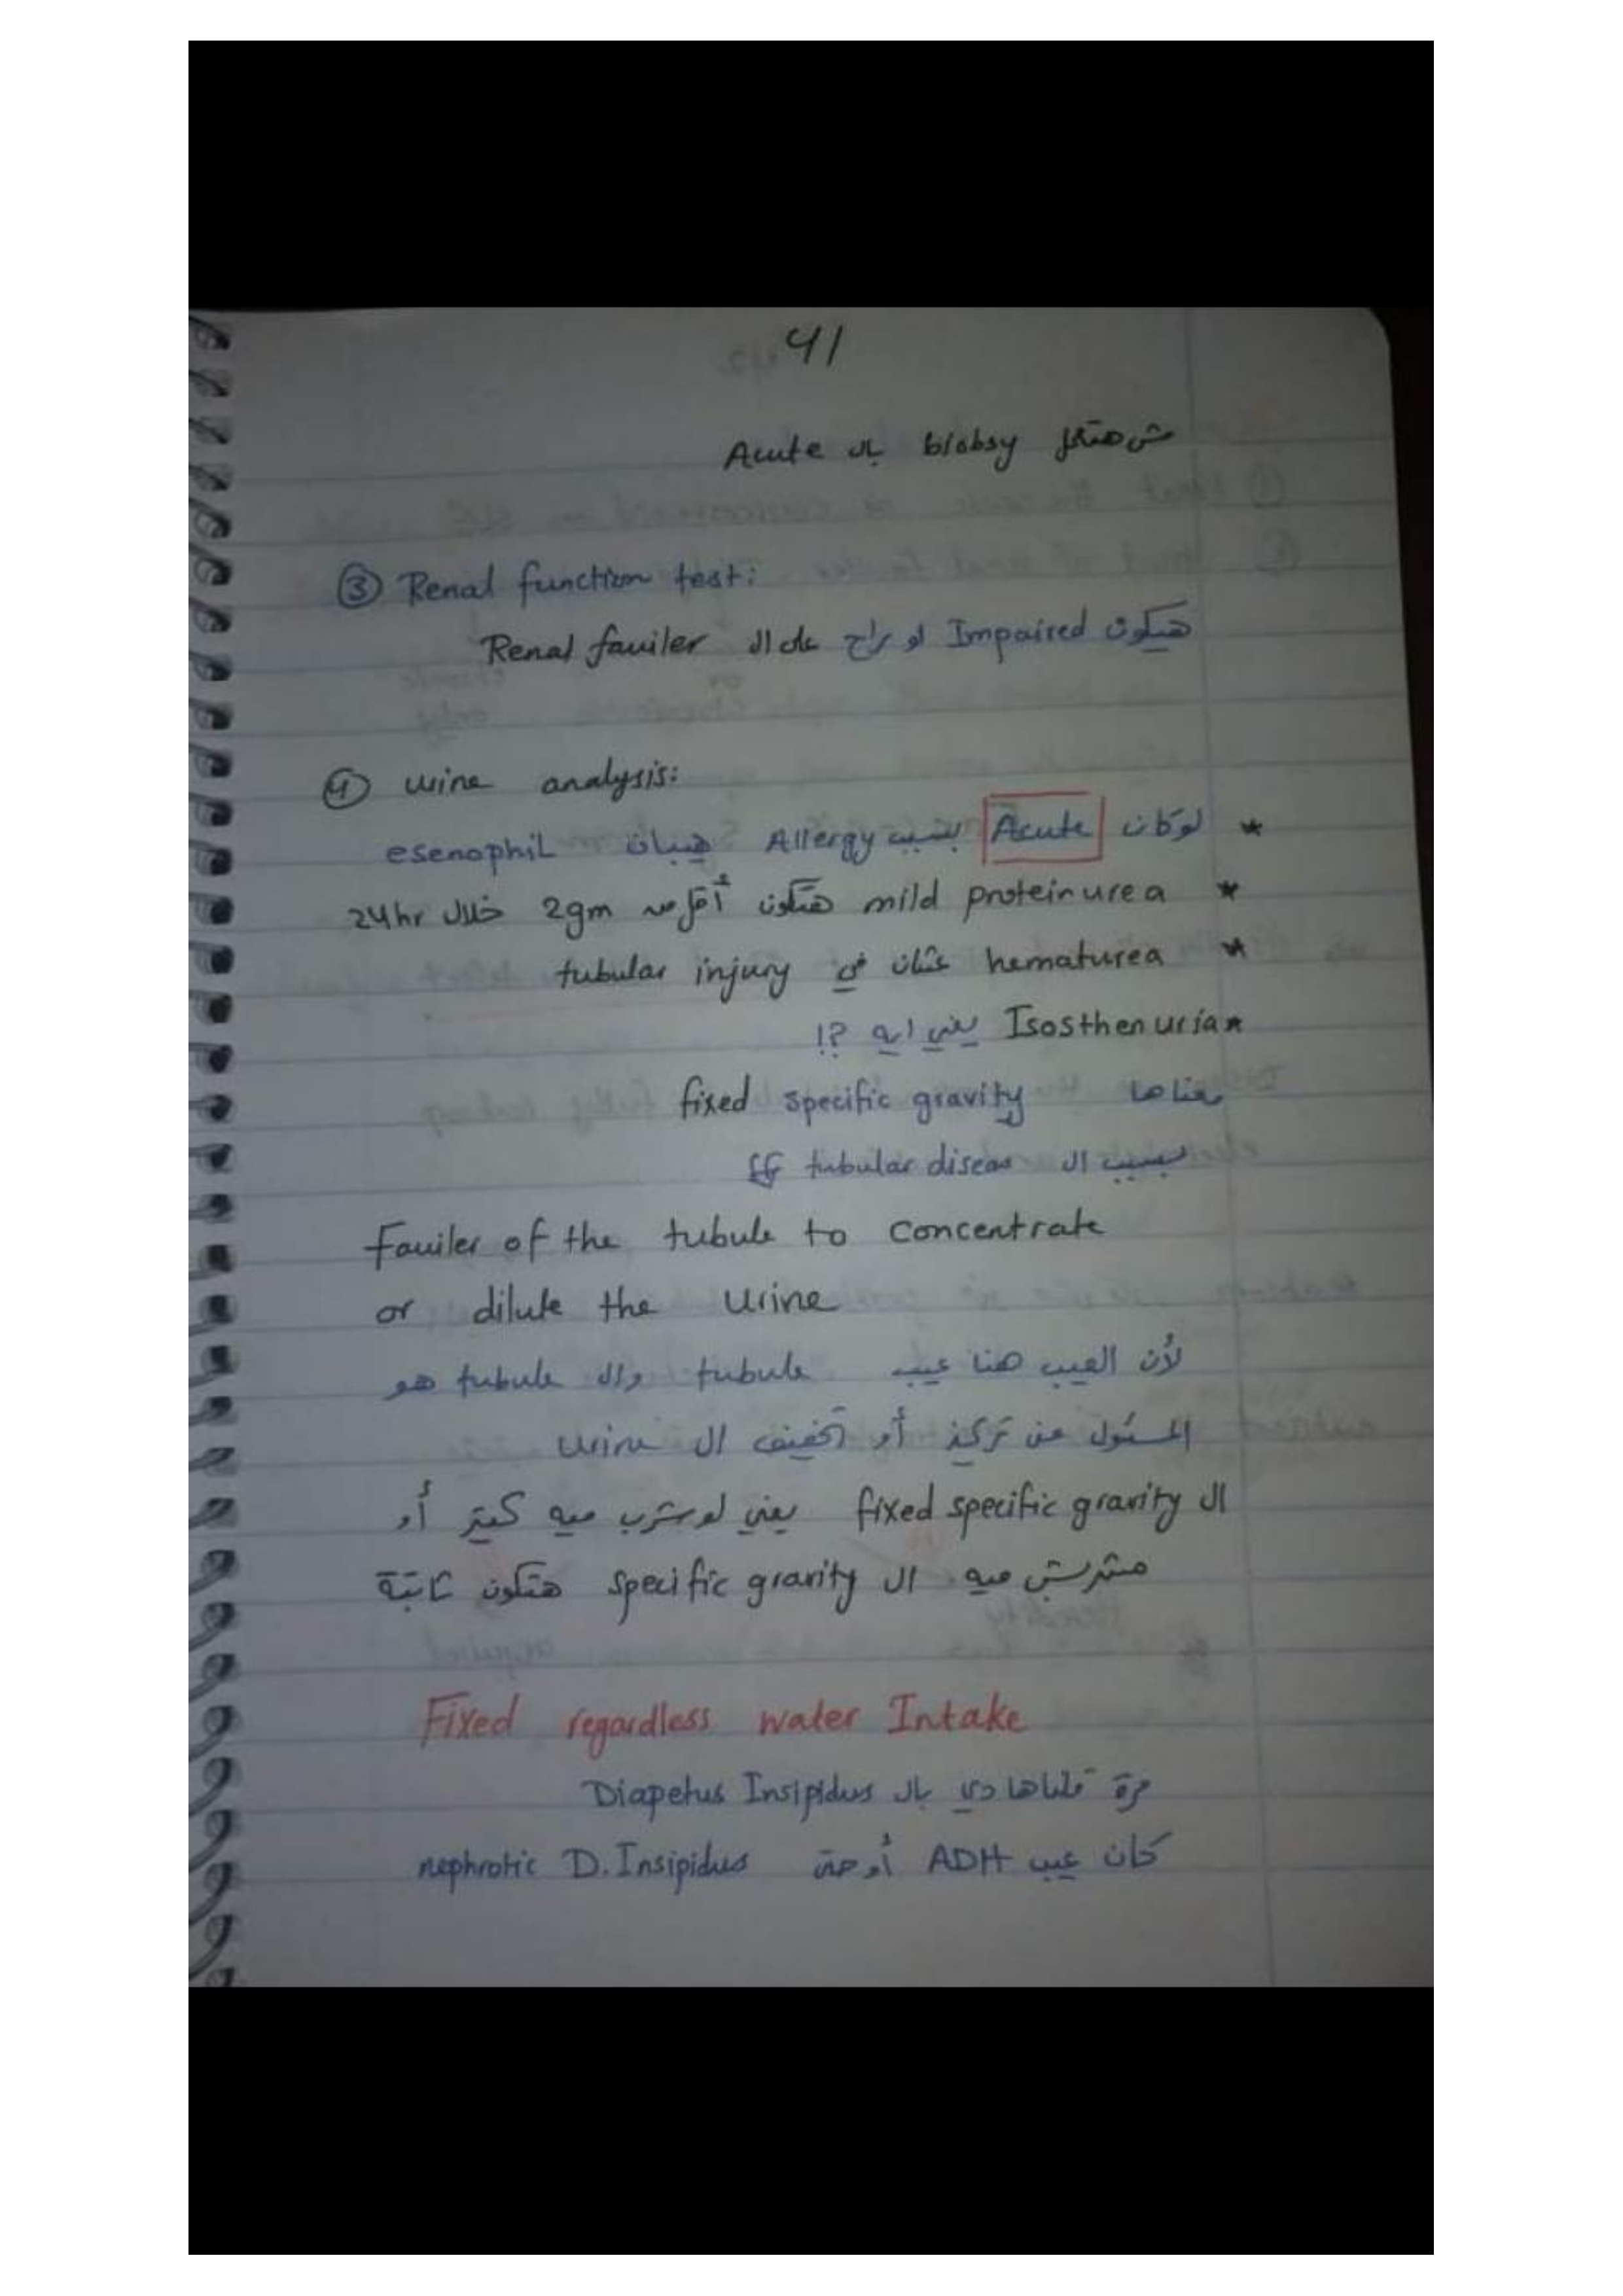 41
مش هتعمل biobsy بال Acute
③ Renal function test:
هيكون Impaired لو راح على ال Renal fauiler
④ urine analysis:
* لو كان Acute بسبب Allergy هيبان esenophil
* mild proteinurea هتكون أقل من 2gm خلال 24hr
* hematurea عشان في tubular injury
* Isosthenuria يعني ايه ?!
معناها fixed specific gravity
بسبب ال tubular diseas
Fauiler of the tubule to concentrate
or dilute the urine
لأن العيب هنا عيب tubule وال tubule هو
المسئول عن تركيز أو تخفيف ال urine
ال fixed specific gravity يعني لو شرب ميه كتير أو
مشربش ميه ال specific gravity هتكون ثابتة
Fixed regardless water Intake
مرة قلناها دي بال Diapetus Insipidus
كان عيب ADH أو حتى nephrotic D.Insipidus